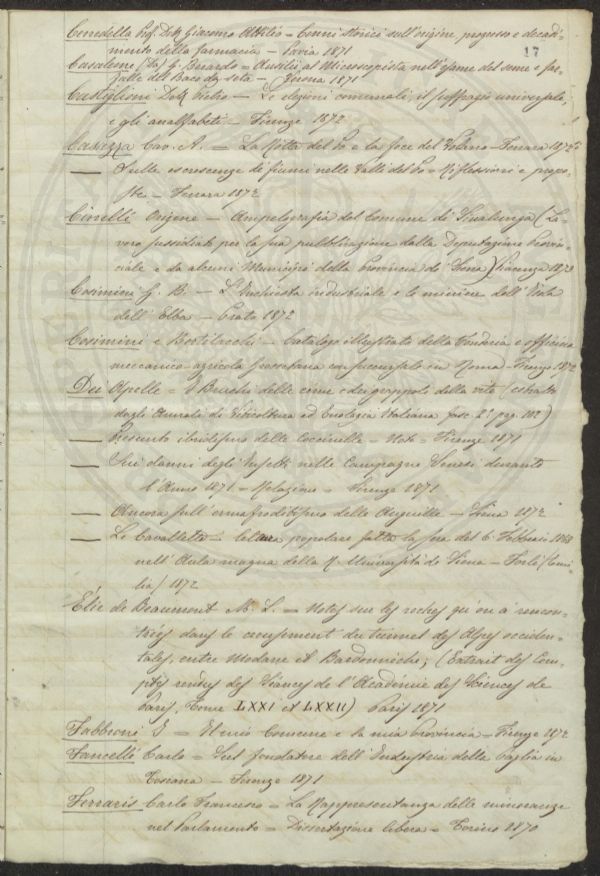 17
Cenedella Prof. Dott. Giacomo Attilio = Cenni storici sull'origine progresso e decadi-
mento della farmacia – Pavia 1871
Casalene (da) G. Gerardo = Ausilii al Microscopista nell'esame del seme e far-
falle del Baco da seta – Verona 1871
Castiglioni Dott. Pietro – Le elezioni comunali, il suffragio universale,
e gli analfabeti – Firenze 1872
Casazza Cav. A. – La Rotta del Po e la foce del Volano – Ferrara 1872
— Sulle escrescenze di fiumi nelle Valli del Po = Riflessioni e propo-
ste – Ferrara 1872
Cinelli Origene – Ampelografia del Comune di Sinalunga (La-
voro sussidiato per la sua pubblicazione dalla Deputazione Provin-
ciale e da alcuni Municipi della Provincia di Siena) Piacenza 1873
Cosimini G. B. – L'Inchiesta industriale e le miniere dell'Isola
dell'Elba – Prato 1872
Cosimini e Bertilacchi – Catalogo illustrato della Fonderia e officina
meccanico-agricola grossetana con succursale in Roma – Firenze 1872
Dei Apelle = I Bruchi delle cime e dei grappoli della vite (estratto
dagli Annali di Viticoltura ed Enologia Italiana fasc. 2° pag. 102)
— Presunto ibridismo delle Coccinelle = Note = Firenze 1871
— Sui danni degli Insetti nelle Campagne Senesi durante
l'Anno 1871 – Relazione – Firenze 1871
— Ancora sull'ermafroditismo delle Anguille – Siena 1872
— Le Cavallette – lettura popolare fatta la sera del 6 Febbraio 1868
nell'Aula magna della R. Università di Siena – Forlì (Emi-
lia) 1872
Élie de Beaumont M. L. = Notes sur les roches qu'on a rencon-
trées dans le creusement du tunnel des Alpes occiden-
tales, entre Modane et Bardonnèche; (Extrait des Com-
ptes rendus des Séances de l'Académie des Sciences de
Paris, Tome LXXI et LXXII) Paris 1871
Fabbroni G = Il mio Comune e la mia Provincia – Firenze 1872
Fancelli Carlo – Sul fondatore dell'Industria della Paglia in
Toscana – Firenze 1871
Ferraris Carlo Francesco – La Rappresentanza delle minoranze
nel Parlamento = Dissertazione libera = Torino 1870